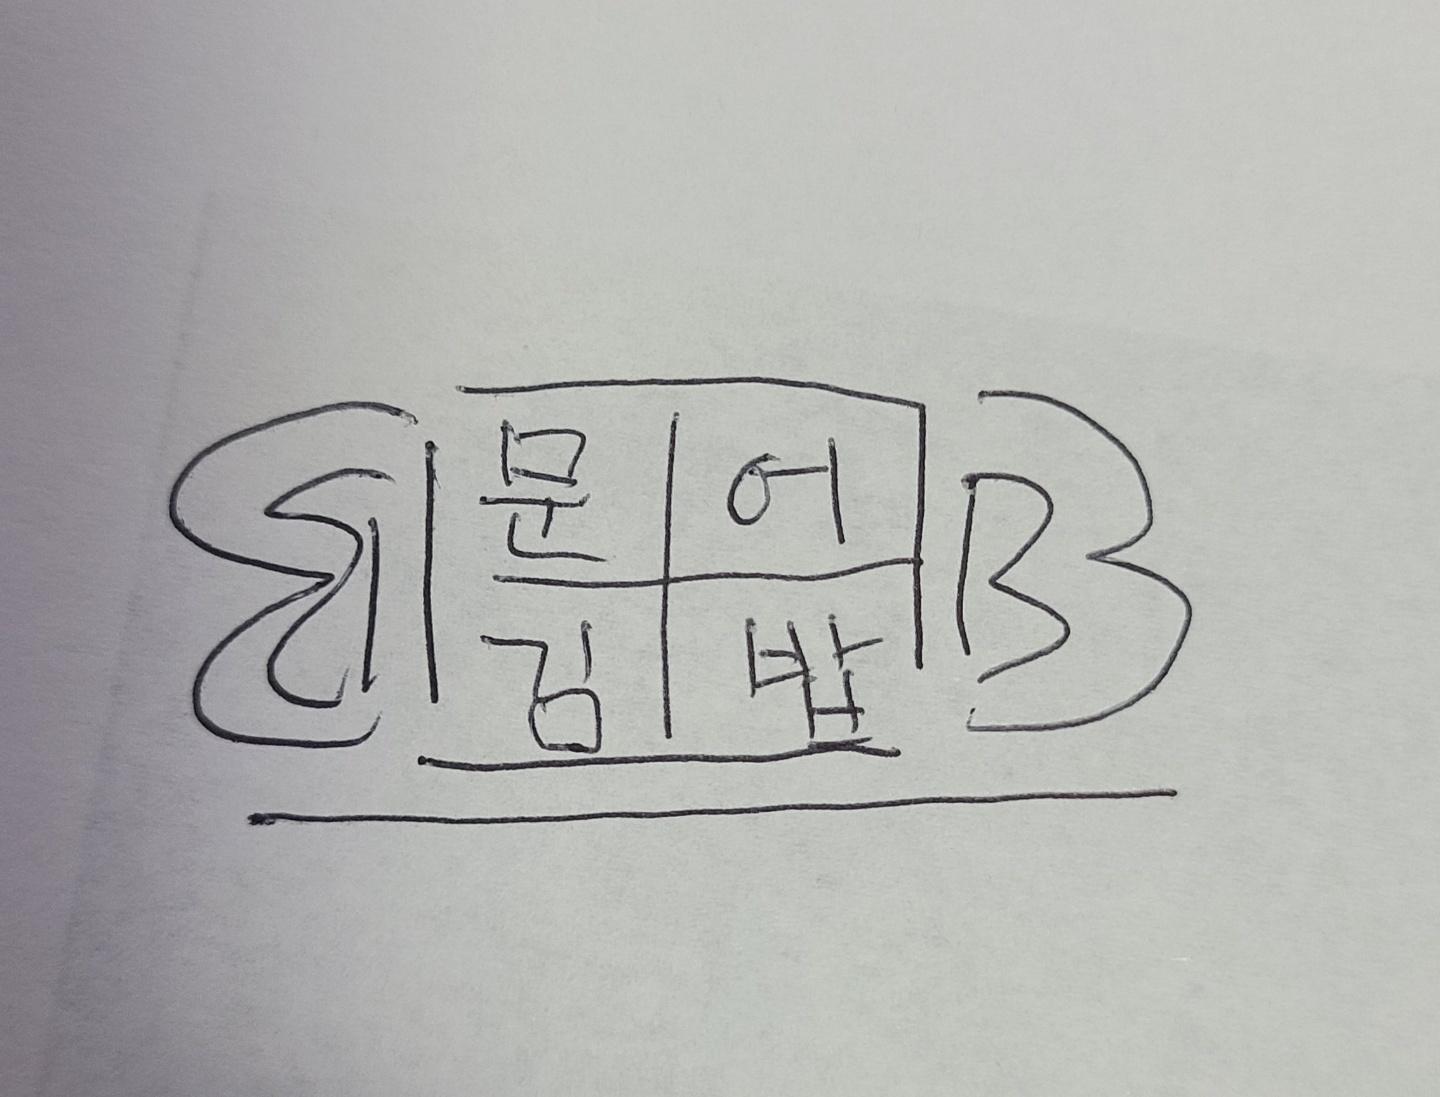 문어
김밥